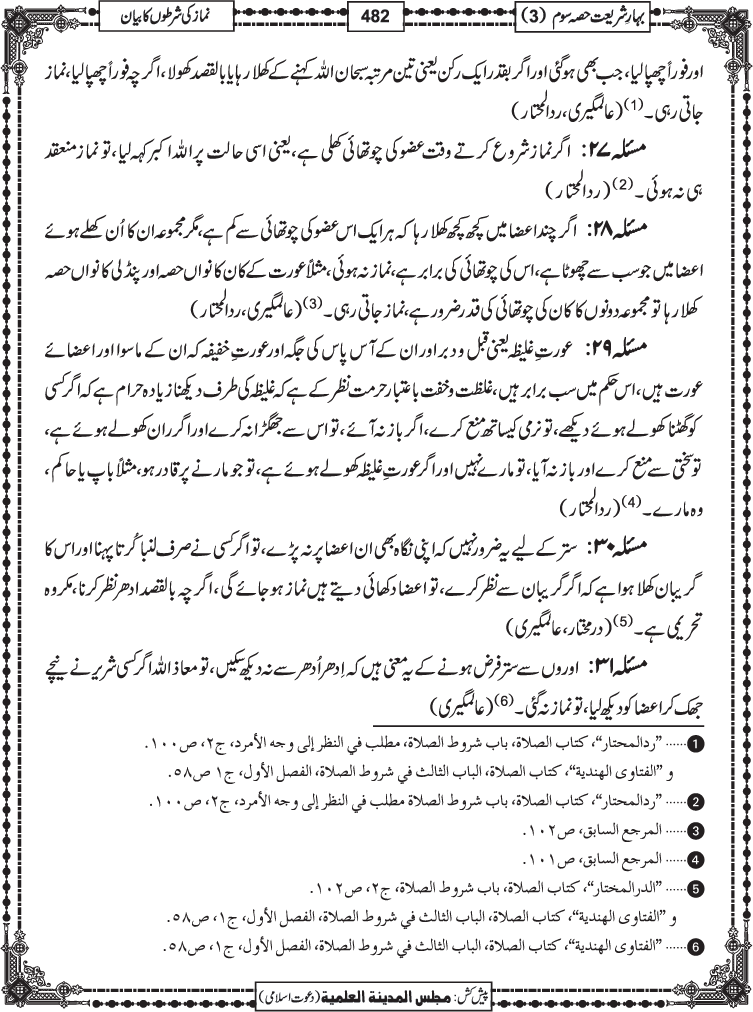 بہارِ شریعت حصہ سوم (3)
482
نماز کی شرطوں کا بیان
اور فوراً چھپا لیا، جب بھی ہوگئی اور اگر بقدر ایک رکن یعنی تین مرتبہ سبحان اللہ کہنے کے کھلا رہا یا بالقصد کھولا، اگرچہ فوراً چھپا لیا، نماز
جاتی رہی۔(1) (عالمگیری، ردالمحتار)
مسئلہ ۲۷: اگر نماز شروع کرتے وقت عضو کی چوتھائی کھلی ہے، یعنی اسی حالت پر اللہ اکبر کہہ لیا، تو نماز منعقد
ہی نہ ہوئی۔(2) (ردالمحتار)
مسئلہ ۲۸: اگر چند اعضا میں کچھ کچھ کھلا رہا کہ ہر ایک اس عضو کی چوتھائی سے کم ہے، مگر مجموعہ ان کا اُن کھلے ہوئے
اعضا میں جو سب سے چھوٹا ہے، اس کی چوتھائی کی برابر ہے، نماز نہ ہوئی، مثلاً عورت کے کان کا نواں حصہ اور پنڈلی کا نواں حصہ
کھلا رہا تو مجموعہ دونوں کا کان کی چوتھائی کی قدر ضرور ہے، نماز جاتی رہی۔(3) (عالمگیری، ردالمحتار)
مسئلہ ۲۹: عورتِ غلیظہ یعنی قبل و دبر اور ان کے آس پاس کی جگہ اور عورتِ خفیفہ کہ ان کے ماسوا اور اعضائے
عورت ہیں، اس حکم میں سب برابر ہیں، غلظت و خفت باعتبار حرمت نظر کے ہے کہ غلیظہ کی طرف دیکھنا زیادہ حرام ہے کہ اگر کسی
کو گھٹنا کھولے ہوئے دیکھے، تو نرمی کیساتھ منع کرے، اگر باز نہ آئے، تو اس سے جھگڑا نہ کرے اور اگر ران کھولے ہوئے ہے،
تو سختی سے منع کرے اور باز نہ آیا، تو مارے نہیں اور اگر عورتِ غلیظہ کھولے ہوئے ہے، تو جو مارنے پر قادر ہو، مثلاً باپ یا حاکم،
وہ مارے۔(4) (ردالمحتار)
مسئلہ ۳۰: ستر کے لیے یہ ضرور نہیں کہ اپنی نگاہ بھی ان اعضا پر نہ پڑے، تو اگر کسی نے صرف لنبا کُرتا پہنا اور اس کا
گریبان کھلا ہوا ہے کہ اگر گریبان سے نظر کرے، تو اعضا دکھائی دیتے ہیں نماز ہو جائے گی، اگرچہ بالقصد ادھر نظر کرنا، مکروہ
تحریمی ہے۔(5) (درمختار، عالمگیری)
مسئلہ ۳۱: اوروں سے ستر فرض ہونے کے یہ معنی ہیں کہ اِدھر اُدھر سے نہ دیکھ سکیں، تو معاذ اللہ اگر کسی شریر نے نیچے
جھک کر اعضا کو دیکھ لیا، تو نماز نہ گئی۔(6) (عالمگیری)
1 ...... "ردالمحتار"، كتاب الصلاة، باب شروط الصلاة، مطلب في النظر إلى وجه الأمرد، ج۲، ص۱۰۰.
و "الفتاوى الهندية"، كتاب الصلاة، الباب الثالث في شروط الصلاة، الفصل الأول، ج۱ ص۵۸.
2 ...... "ردالمحتار"، كتاب الصلاة، باب شروط الصلاة مطلب في النظر إلى وجه الأمرد، ج۲، ص۱۰۰.
3 ...... المرجع السابق، ص۱۰۲.
4 ...... المرجع السابق، ص۱۰۱.
5 ...... "الدرالمختار"، كتاب الصلاة، باب شروط الصلاة، ج۲، ص۱۰۲.
و "الفتاوى الهندية"، كتاب الصلاة، الباب الثالث في شروط الصلاة، الفصل الأول، ج۱، ص۵۸.
6 ...... "الفتاوى الهندية"، كتاب الصلاة، الباب الثالث في شروط الصلاة، الفصل الأول، ج۱، ص۵۸.
پیش کش: مجلس المدینة العلمیة (دعوتِ اسلامی)